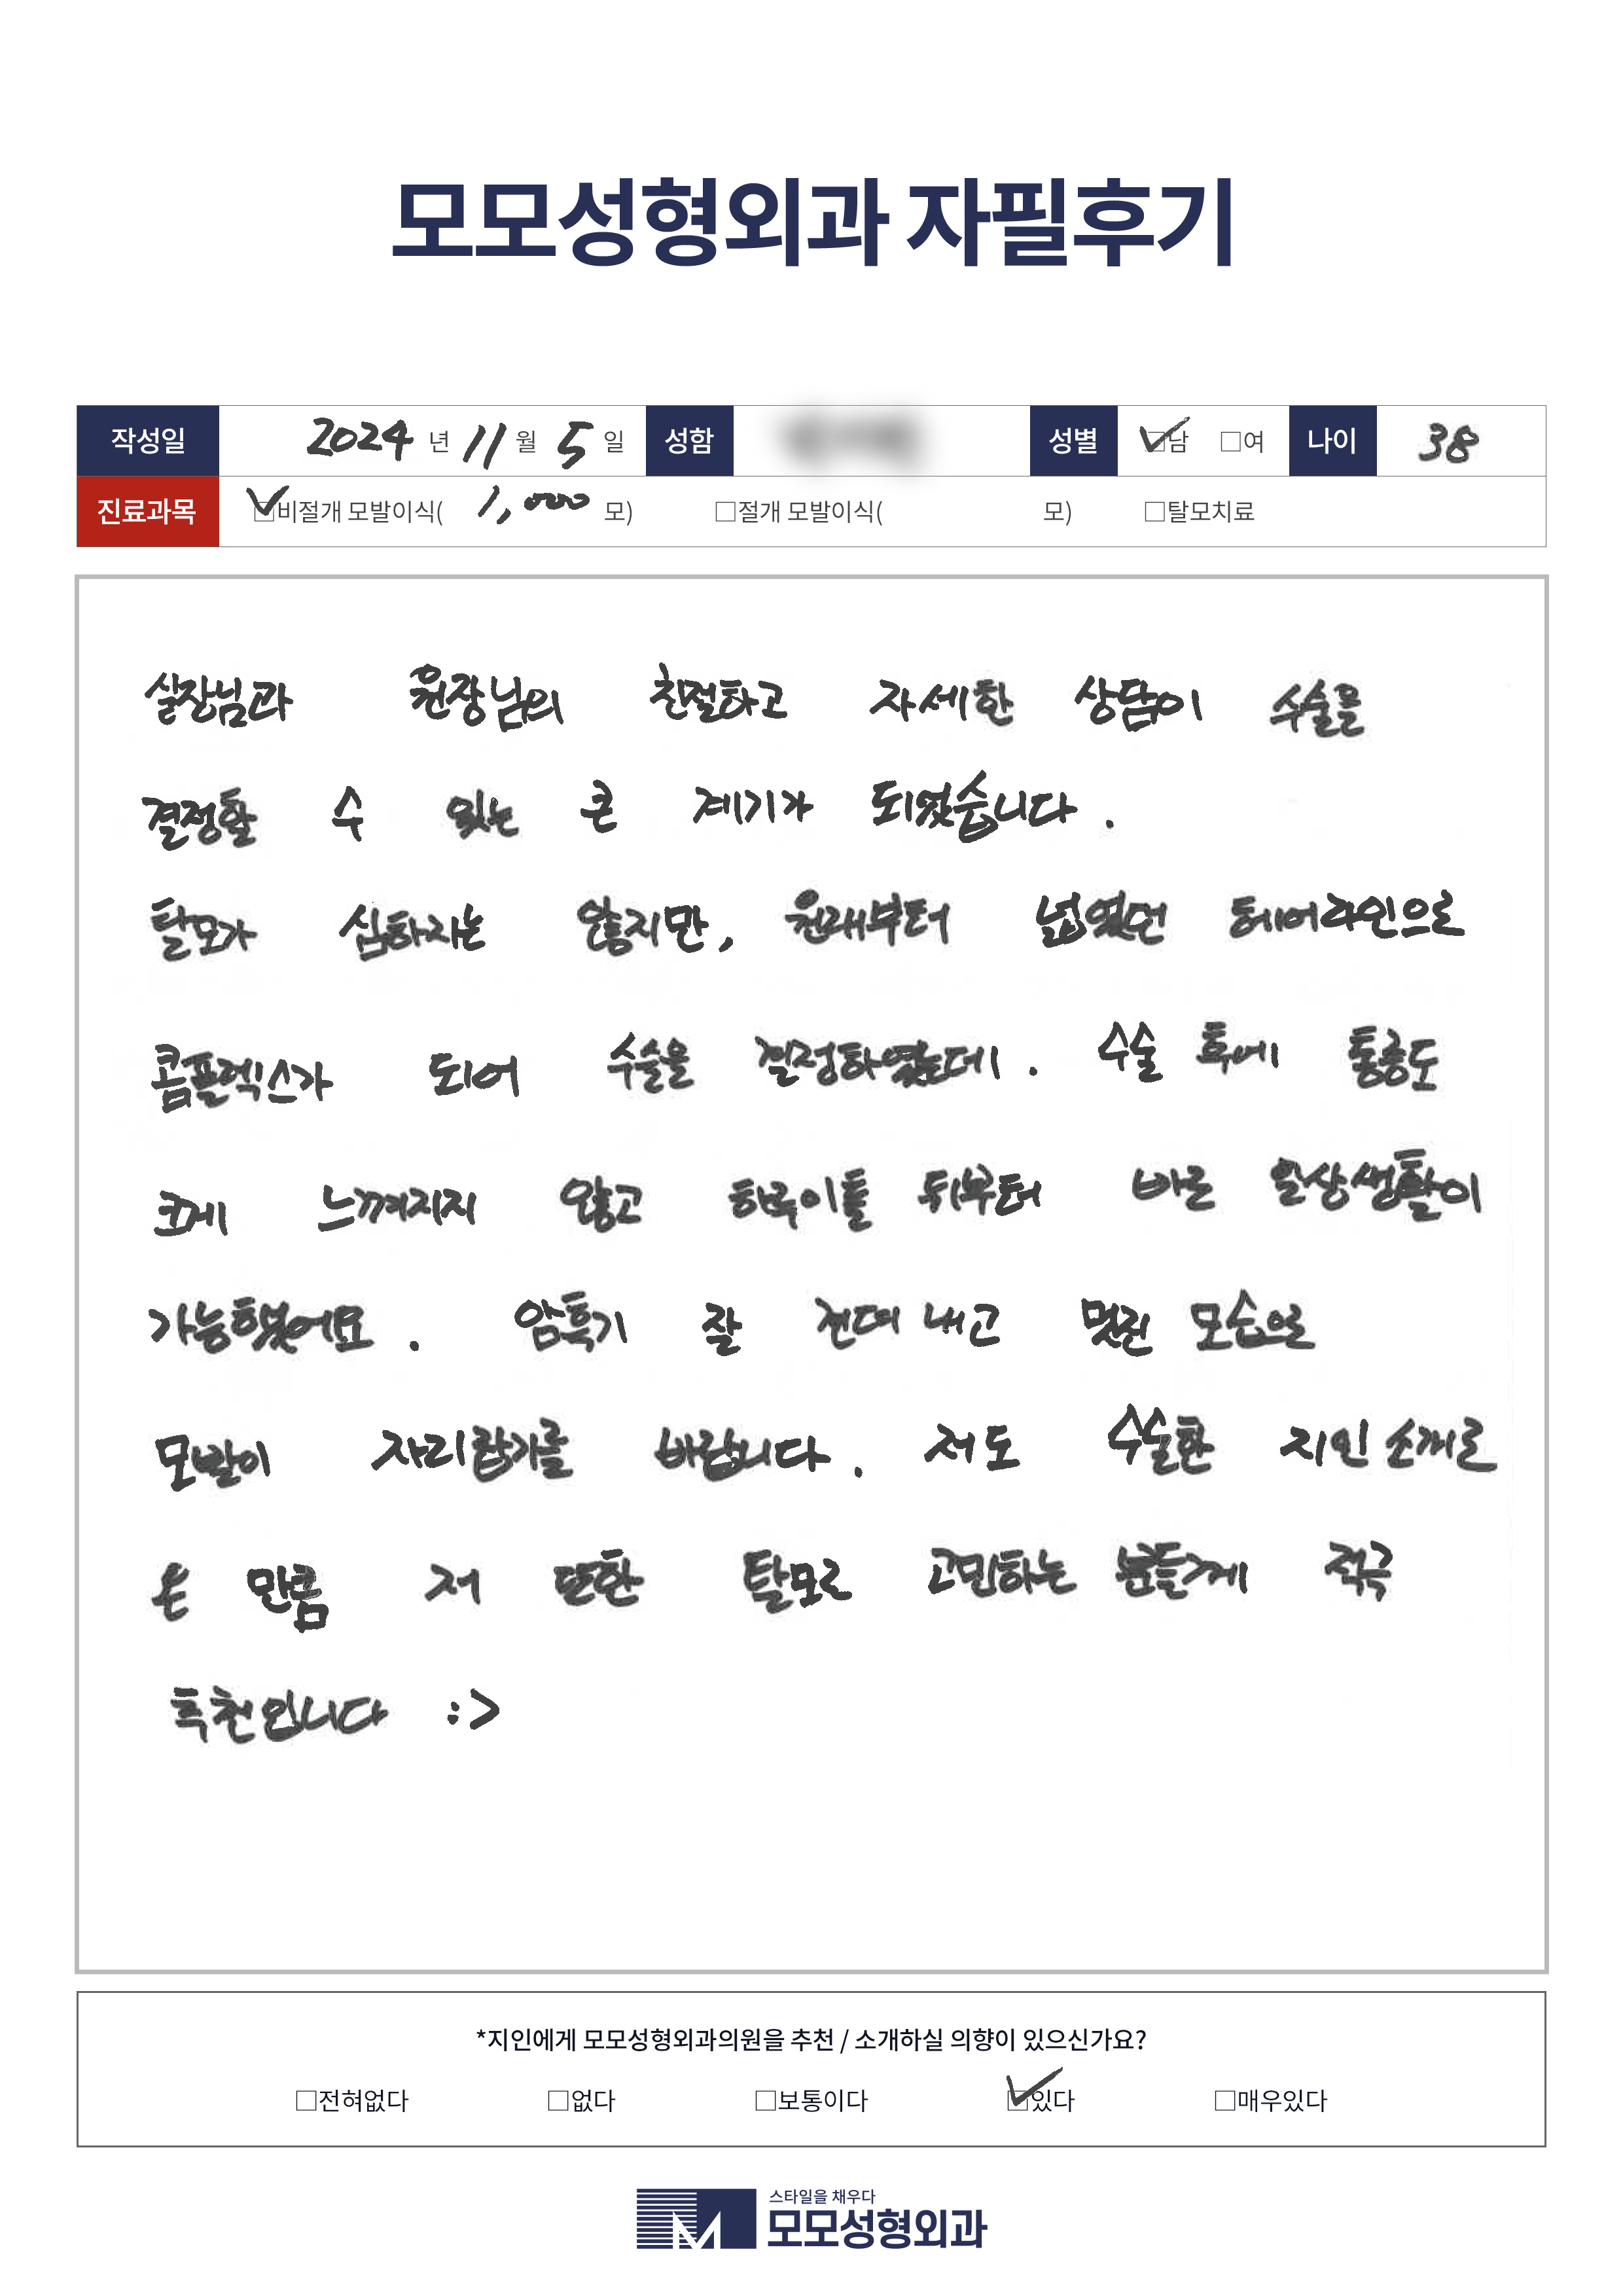 모모성형외과 자필후기
작성일 2024 년 11 월 5 일 성함 성별 □남 □여 나이 38
진료과목 □비절개 모발이식( 1,000 모) □절개 모발이식( 모) □탈모치료
실장님과 원장님의 친절하고 자세한 상담이 수술을
결정할 수 있는 큰 계기가 되었습니다.
탈모가 심하지는 않지만, 원래부터 넓었던 헤어라인으로
콤플렉스가 되어 수술을 결정하였는데. 수술 후에 통증도
크게 느껴지지 않고 하루이틀 뒤부터 바로 일상생활이
가능했어요. 암흑기 잘 견뎌 내고 멋진 모습으로
모발이 자리잡기를 바랍니다. 저도 수술한 지인 소개로
온 만큼 저 또한 탈모로 고민하는 분들께 적극
추천입니다 :>
*지인에게 모모성형외과의원을 추천 / 소개하실 의향이 있으신가요?
□전혀없다 □없다 □보통이다 □있다 □매우있다
스타일을 채우다
모모성형외과